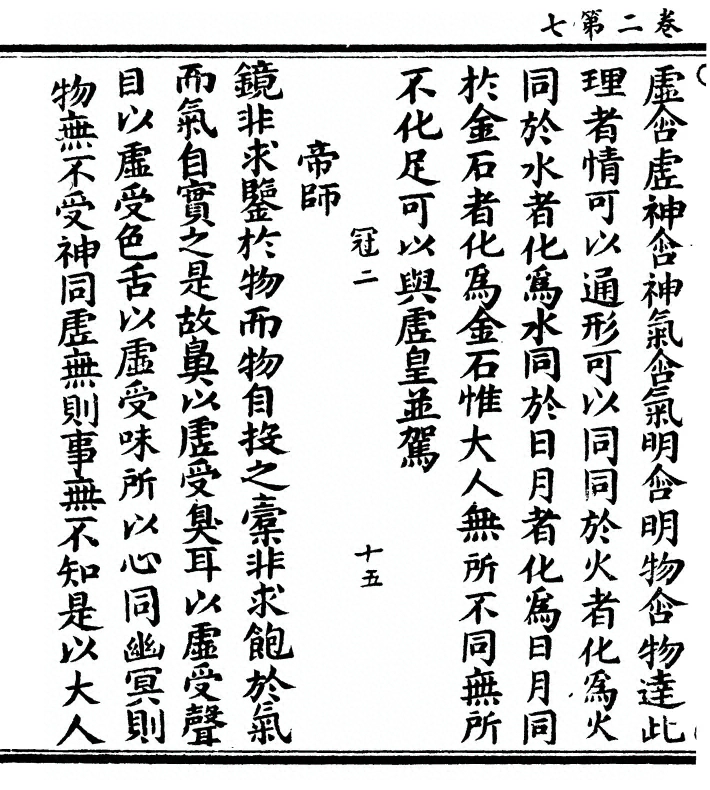 卷二第七
虛含虛神含神氣含氣明含明物含物達此
理者情可以通形可以同同於火者化爲火
同於水者化爲水同於日月者化爲日月同
於金石者化爲金石惟大人無所不同無所
不化足可以與虛皇並駕
冠二 十五
帝師
鏡非求鑒於物而物自投之橐非求飽於氣
而氣自實之是故鼻以虛受臭耳以虛受聲
目以虛受色舌以虛受味所以心同幽冥則
物無不受神同虛無則事無不知是以大人